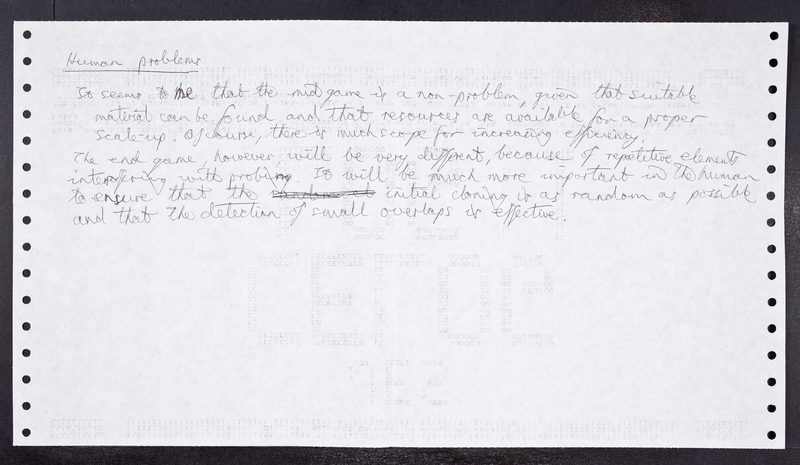 Human problems
It seems to me that the midgame is a non-problem, given that suitable
material can be found and that resources are available for a proper
scale-up. Of course, there is much scope for increasing efficiency.
The end game, however, will be very different, because of repetitive elements
interfering with probing. It will be much more important in the human
to ensure that the initial cloning is as random as possible
and that the detection of small overlaps is effective.